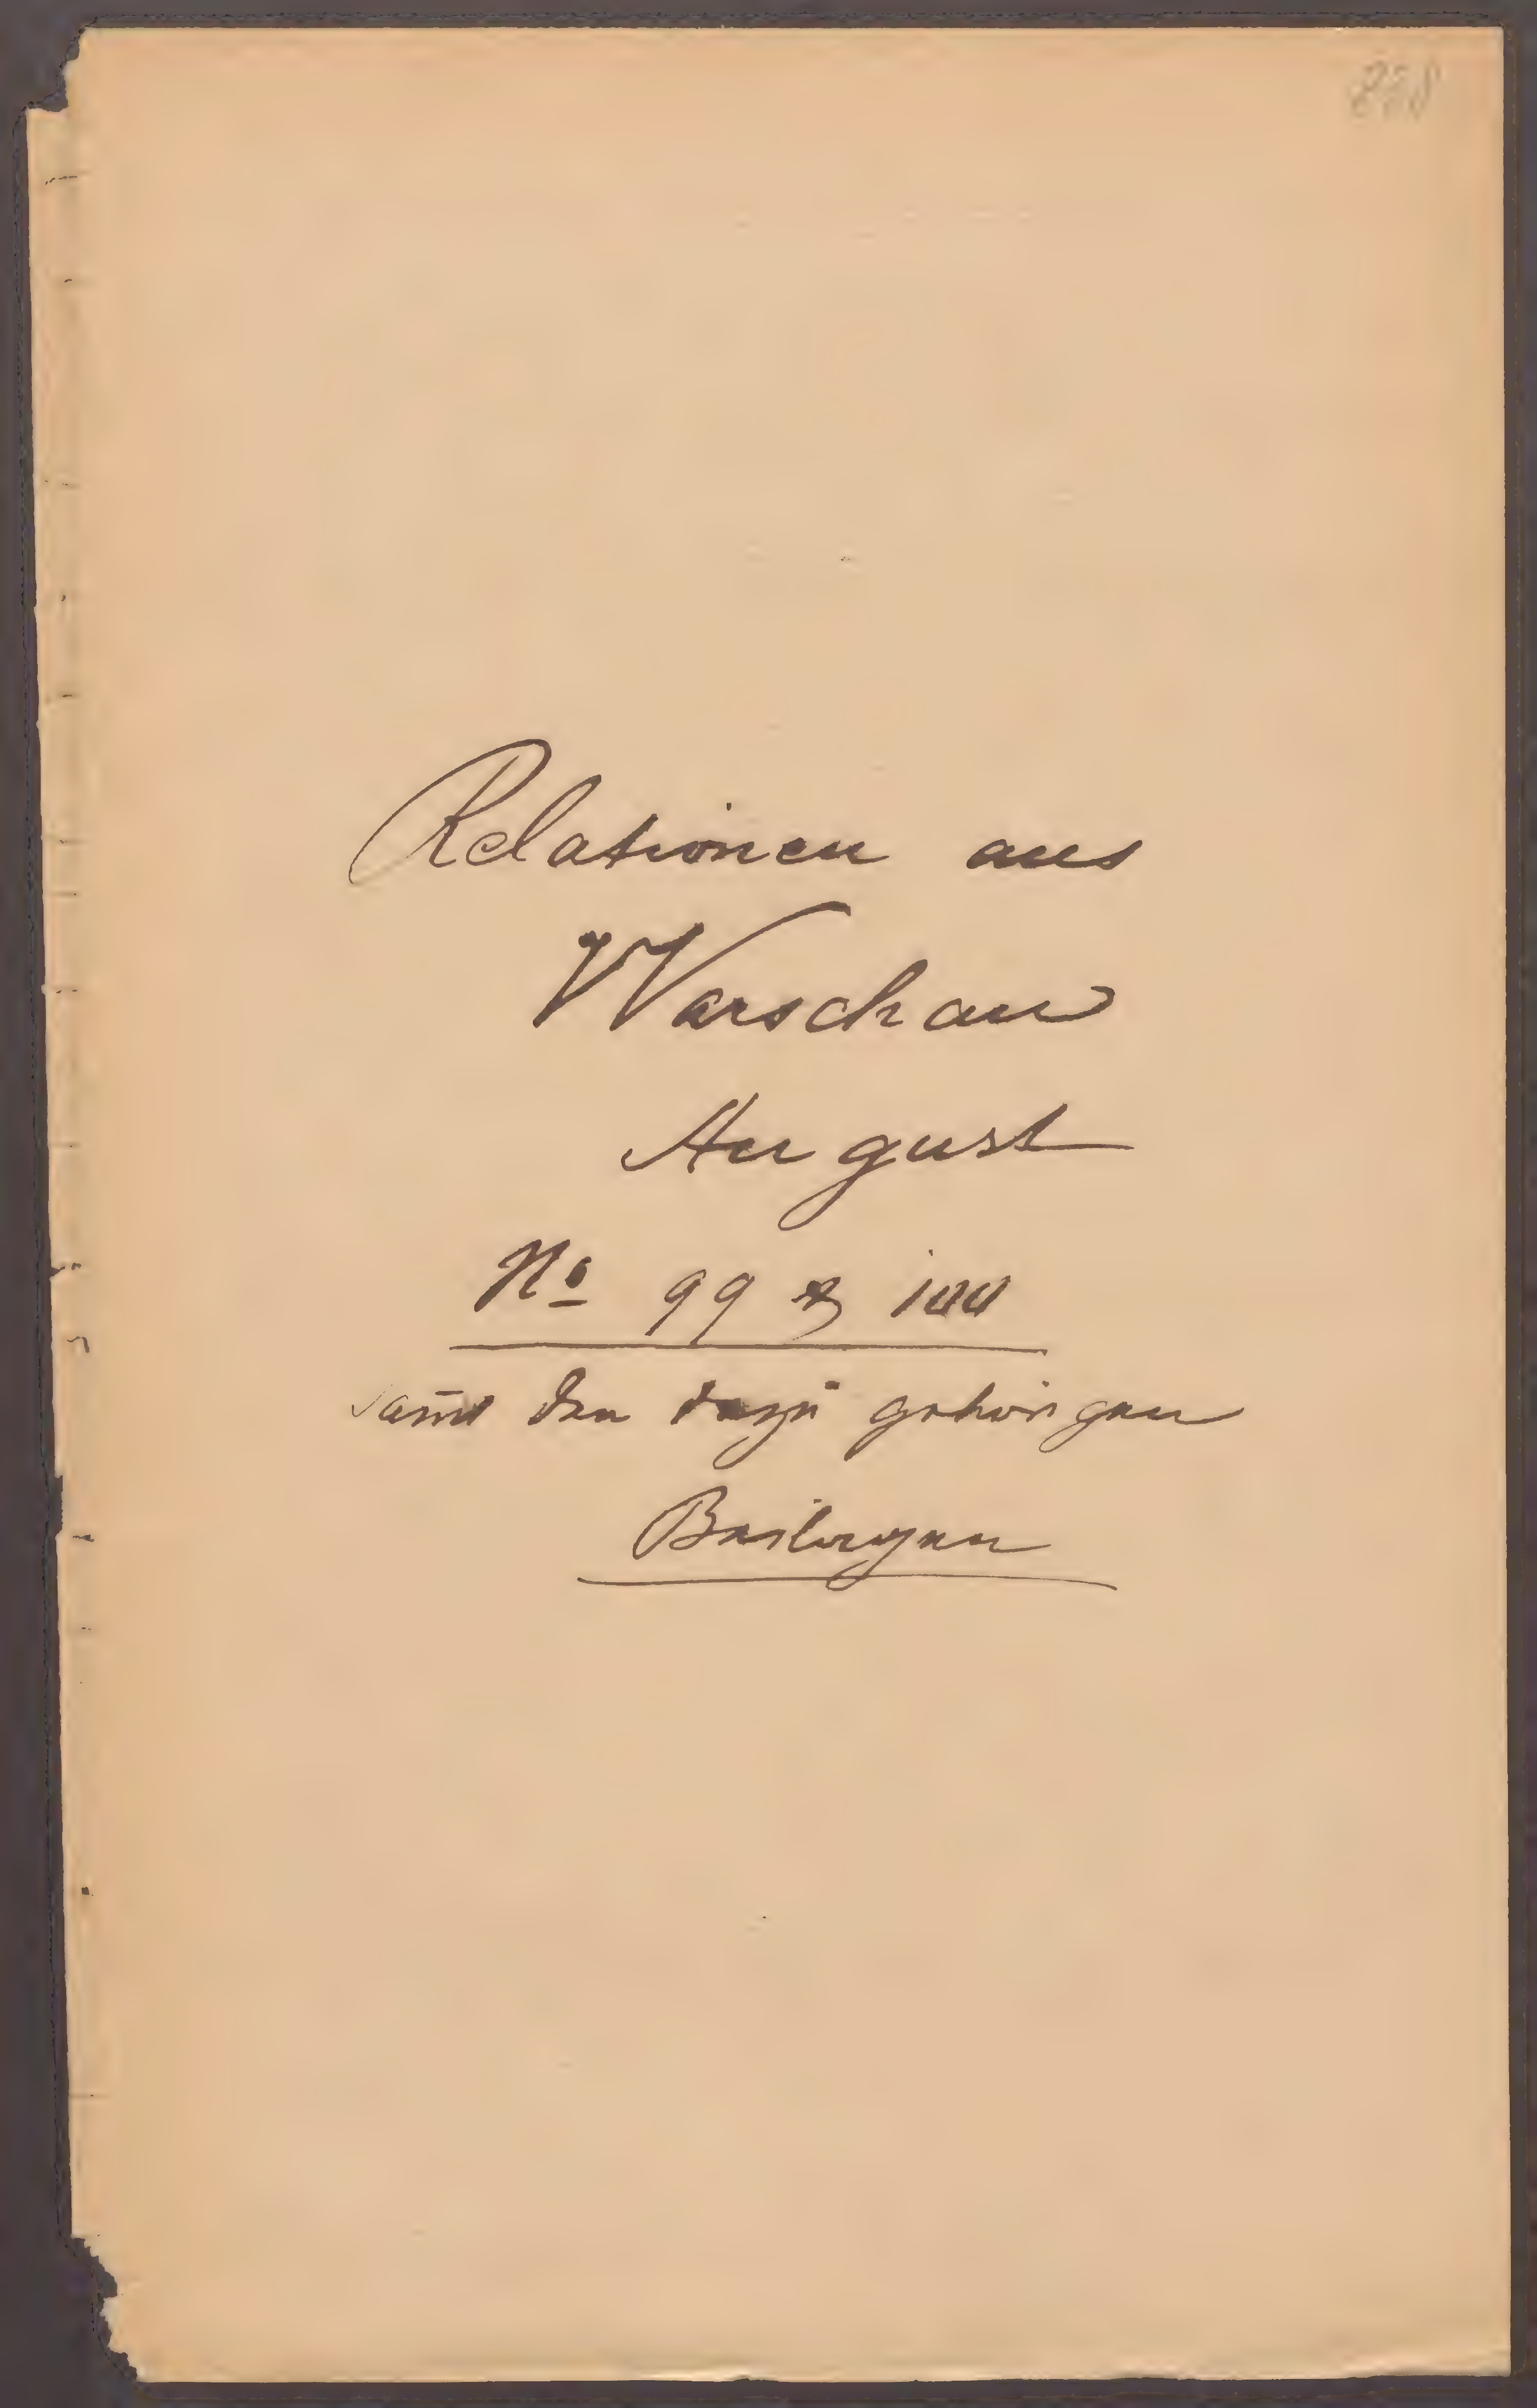 Relationen aus
Warschau
August
No 99 & 100
samt den dazu gehörigen
Beilagen